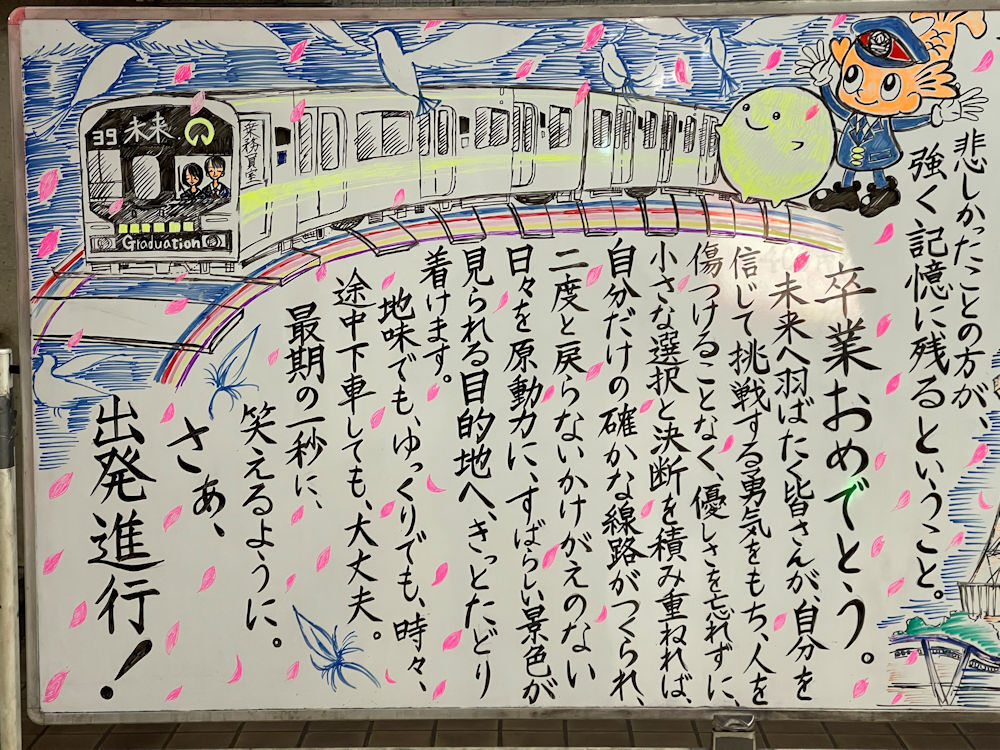 悲しかったことの方が、
強く記憶に残るということ。
卒業おめでとう。
未来へ羽ばたく皆さんが、自分を
信じて挑戦する勇気をもち、人を
傷つけることなく、優しさを忘れずに、
小さな選択と決断を積み重ねれば、
自分だけの確かな線路がつくられ、
二度と戻らないかけがえのない
日々を原動力に、すばらしい景色が
見られる目的地へ、きっとたどり
着けます。
地味でも、ゆっくりでも、時々、
途中下車しても、大丈夫。
最期の一秒に、
笑えるように。
さあ、
出発進行！
39 未来
乗務員室
Graduation